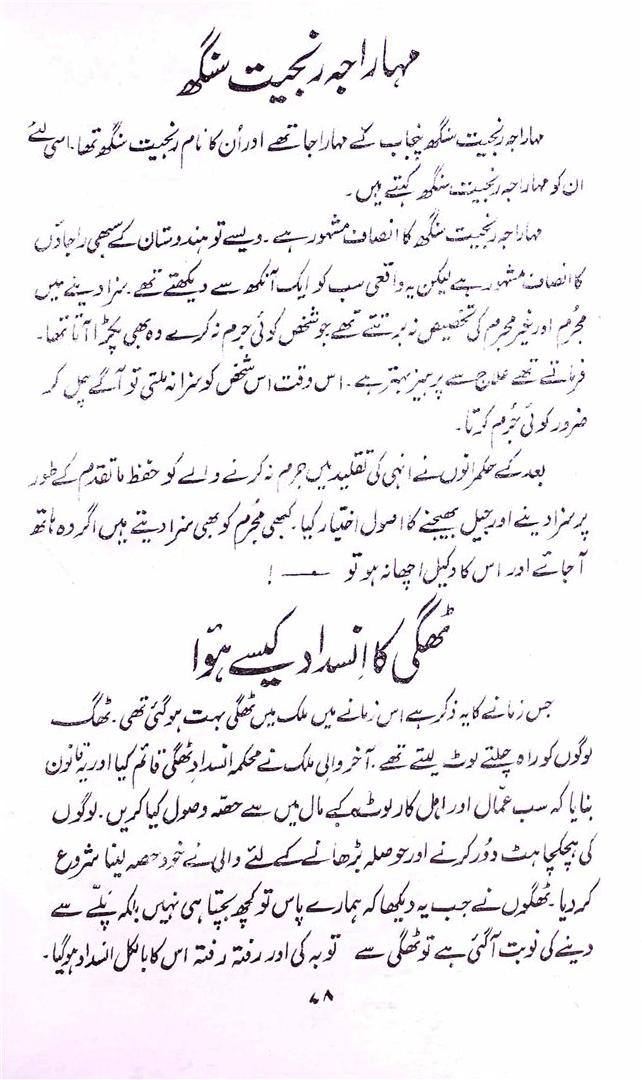 مہاراجہ رنجیت سنگھ
مہاراجہ رنجیت سنگھ پنجاب کے مہاراجا تھے اور اُن کا نام رنجیت سنگھ تھا۔ اسی لئے
ان کو مہاراجہ رنجیت سنگھ کہتے ہیں۔
مہاراجہ رنجیت سنگھ کا انصاف مشہور ہے۔ ویسے تو ہندوستان کے سبھی راجاؤں
کا انصاف مشہور ہے لیکن یہ واقعی سب کو ایک آنکھ سے دیکھتے تھے۔ سزا دینے میں
مجُرم اور غیر مجرم کی تخصیص نہ برتتے تھے۔ جو شخص کوئی جرم نہ کرے وہ بھی پکڑا آتا تھا۔
فرماتے تھے علاج سے پرہیز بہتر ہے۔ اس وقت اس شخص کو سزا نہ ملتی تو آگے چل کر
ضرور کوئی جُرم کرتا۔
بعد کے حکمرانوں نے انہی کی تقلید میں جرم نہ کرنے والے کو حفظ ماتقدم کے طور
پر سزا دینے اور جیل بھیجنے کا اصول اختیار کیا۔ کبھی مجُرم کو بھی سزا دیتے ہیں اگر وہ ہاتھ
آ جائے اور اس کا وکیل اچھا نہ ہو تو ——— !
ٹھگی کا اِنسداد کیسے ہوٗا
جس زمانے کا یہ ذکر ہے اس زمانے میں ملک میں ٹھگی بہت ہو گئی تھی۔ ٹھگ
لوگوں کو راہ چلتے لوٹ لیتے تھے۔ آخر والیِ ملک نے محکمہ انسدادِ ٹھگی قائم کیا اور یہ قانون
بنایا کہ سب عمّال اور اہل کار لوٹ کے مال میں سے حصّہ وصول کیا کریں۔ لوگوں
کی ہچکچاہٹ دُور کرنے اور حوصلہ بڑھانے کے لئے والی نے خود حصہ لینا شروع
کر دیا۔ ٹھگوں نے جب یہ دیکھا کہ ہمارے پاس تو کچھ بچتا ہی نہیں بلکہ پَلّے سے
دینے کی نوبت آ گئی ہے تو ٹھگی سے توبہ کی اور رفتہ رفتہ اس کا بالکل انسداد ہو گیا۔
۷۸